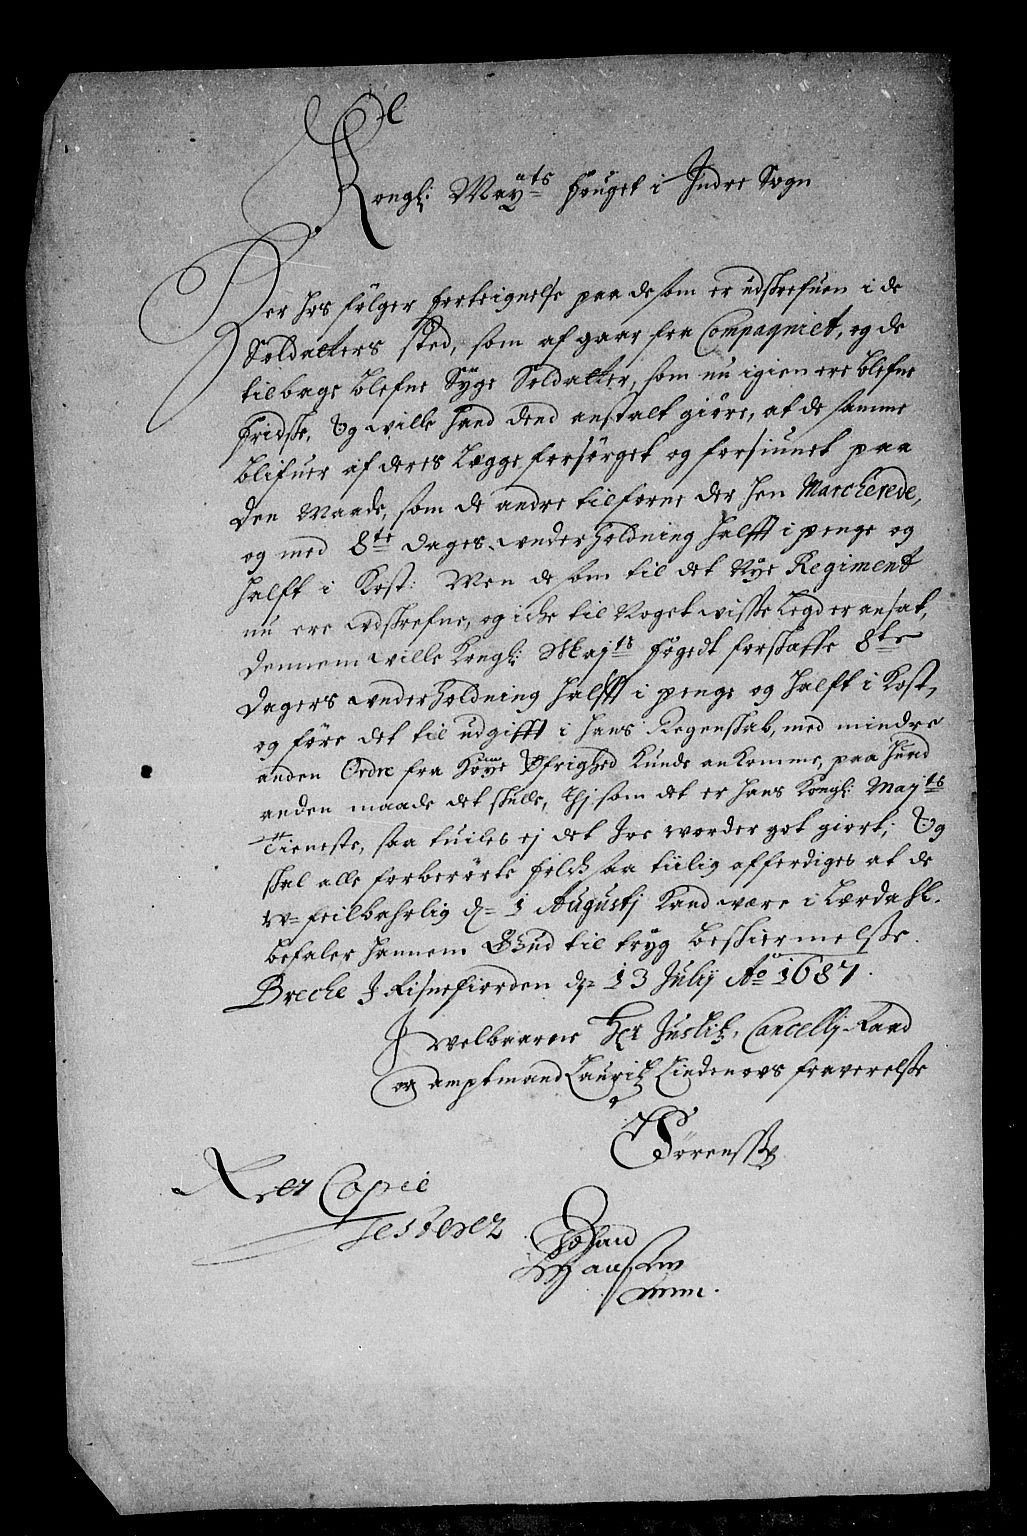 Kongl: Mayts fouget i Indre Sogn
Her hos følger forteignelse paa de som er udskrefuen i de
Soldatters sted, som af gaar fra Compagniet, og de
tilbage blefne Syge Soldatter, som nu igien ere blefne
friske, Og wille hand dend anstalt giøre, at de samme
blifuer af deres Lægge forsørget og forsiunet paa
den Maade, som de andre tilforne der hen Marcherede,
og med 8te dages underholdning halfft i penge og
halft i Kost: Men de som til det Nye Regiment
nu ere udskrefne, og iche til Noget wisse Legder ansat,
dennem wille Kongl: Majts fogedt forskaffe 8te
dagers underholdning halfft i penge og halft i Kost,
og føre det til udgifft i hans Regenskab, med mindre
anden Ordre fra høye Øfrighed kunde ankomme, paa hund
anden maade det skulle, thj som det er hans Kongl: Mayts
Tieneste, saa tuiles ej det Joe worder got giort; Og
skal alle forberørte folch saa tiilig afferdiges at de
u-feilbahrlig d: 1 Augustj kand være i Lærdahl.
befaler hannem Gud til tryg beskiermelsse.
Breche I Risnefiorden d: 13 Julij Ao 1687.
I welbaarene Her Justitz, Cancellj-Raad
og amptmand Lauritz Lindenovs fraverelsse
Sørenssen
Ret Copie
Testerer
Johan
Hansen
mm.